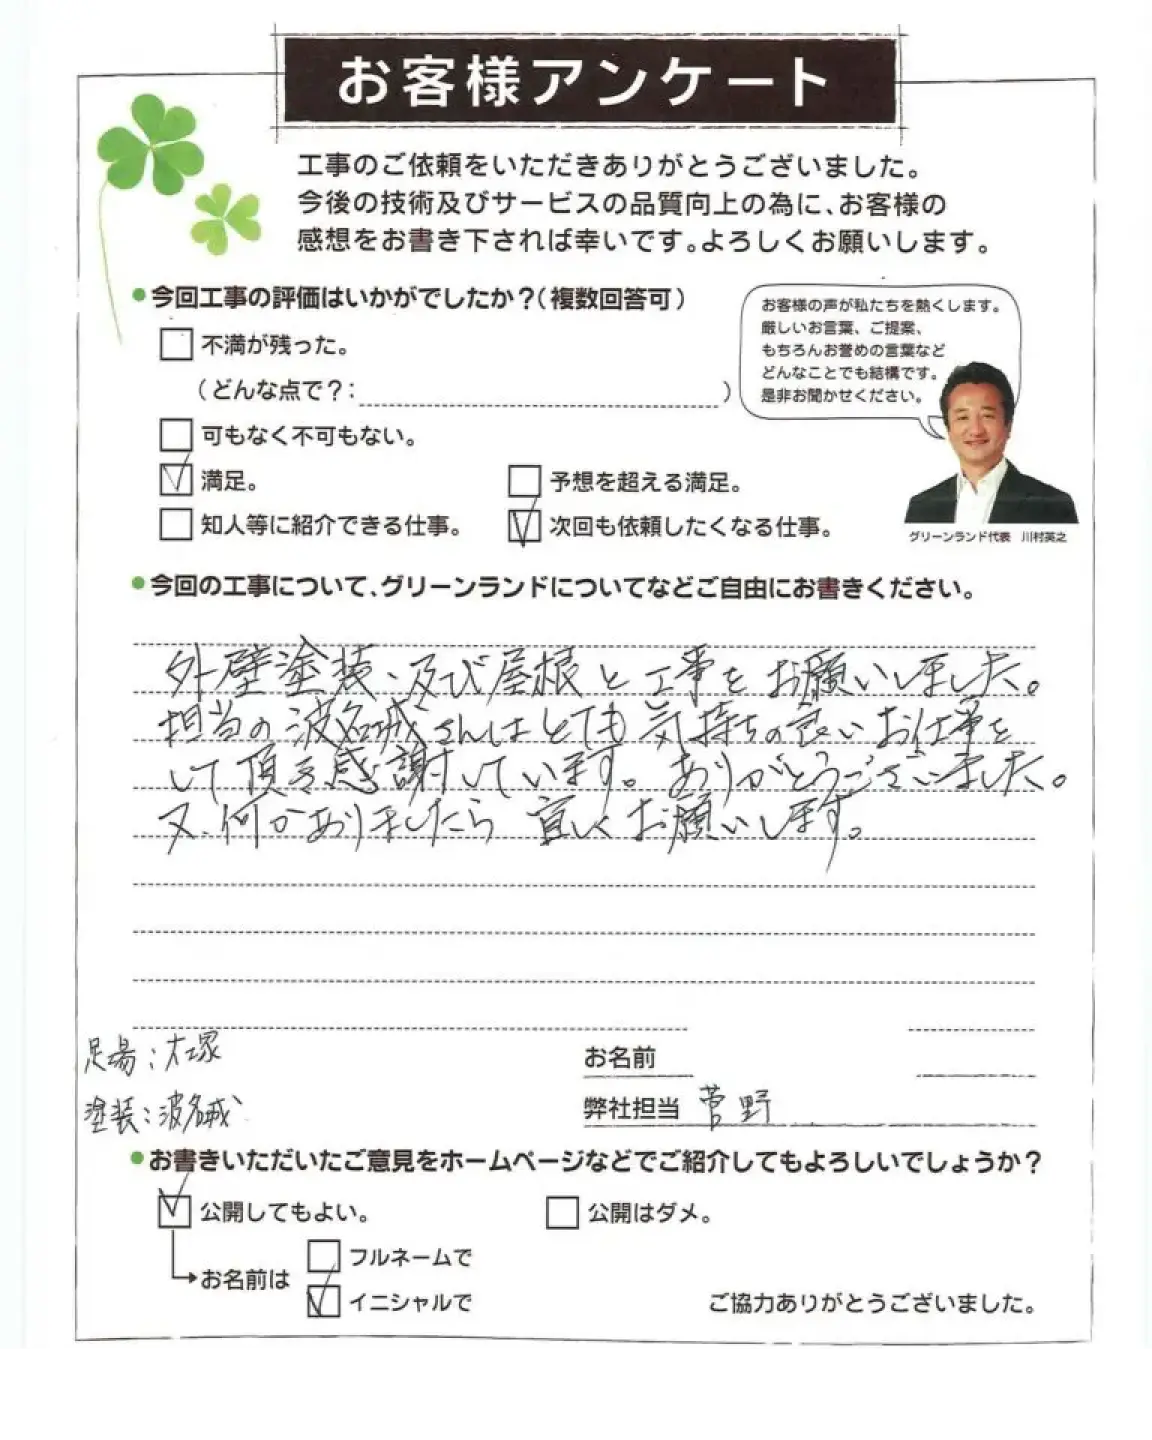 お客様アンケート
工事のご依頼をいただきありがとうございました。
今後の技術及びサービスの品質向上の為に、お客様の
感想をお書き下されば幸いです。よろしくお願いします。
今回工事の評価はいかがでしたか？（複数回答可）
不満が残った。
（どんな点で？： ）
可もなく不可もない。
満足。
予想を超える満足。
知人等に紹介できる仕事。
次回も依頼したくなる仕事。
お客様の声が私たちを熱くします。
厳しいお言葉、ご提案、
もちろんお誉めの言葉など
どんなことでも結構です。
是非お聞かせください。
グリーンランド代表 川村英之
今回の工事について、グリーンランドについてなどご自由にお書きください。
外壁塗装、及び屋根と工事をお願いしました。
担当の波名城さんはとても気持ちの良いお仕事を
して頂き感謝しています。ありがとうございました。
又、何かありましたら宜しくお願いします。
足場：大塚
塗装：波名城
お名前
弊社担当 菅野
お書きいただいたご意見をホームページなどでご紹介してもよろしいでしょうか？
公開してもよい。
公開はダメ。
お名前は
フルネームで
イニシャルで
ご協力ありがとうございました。